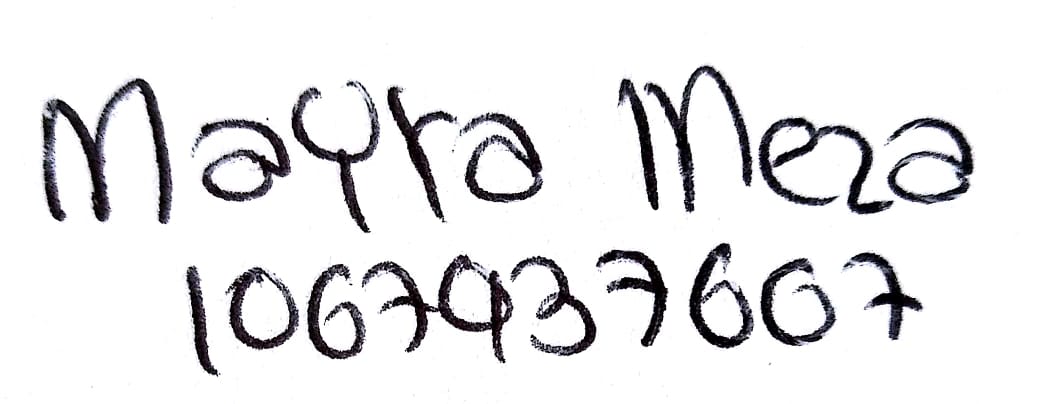 Mayra Meza
1067937667